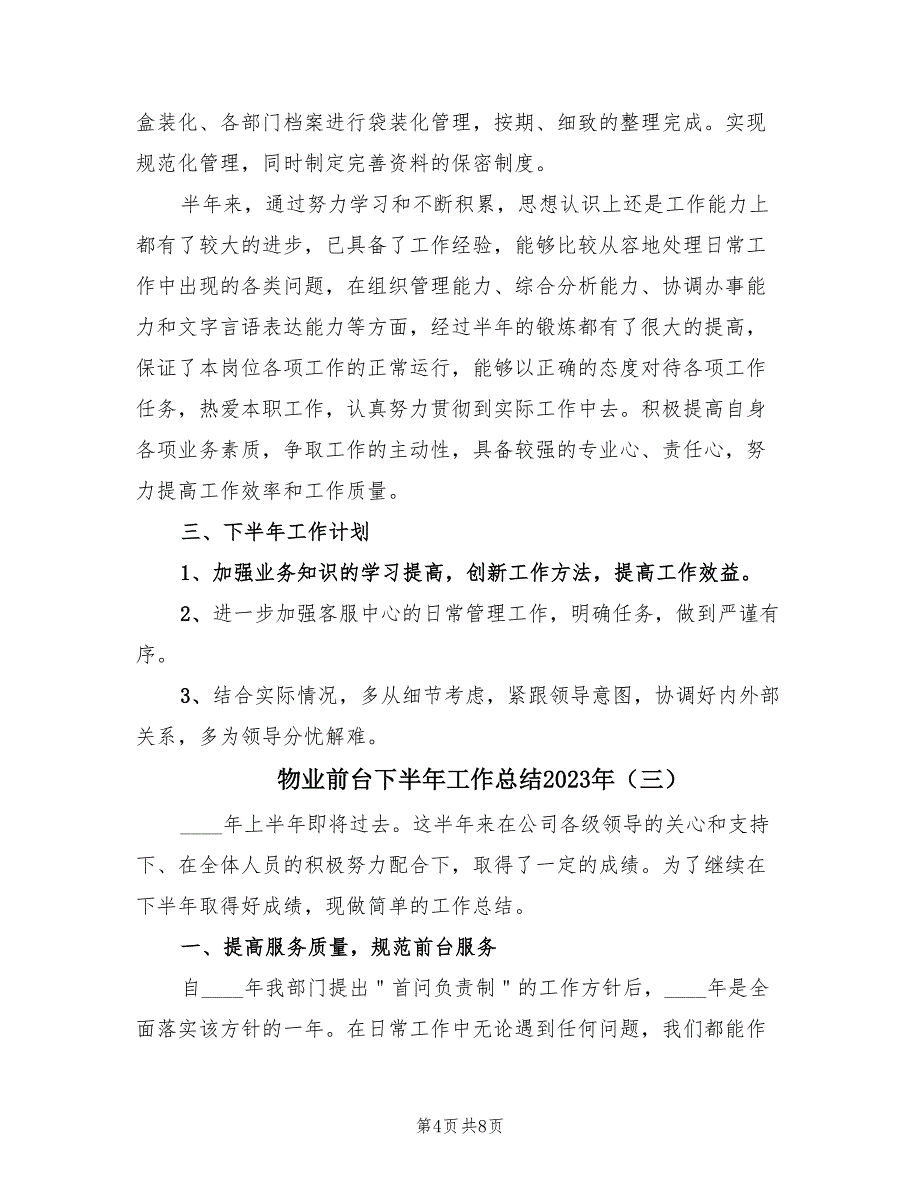 盒装化、各部门档案进行袋装化管理，按期、细致的整理完成。实现
规范化管理，同时制定完善资料的保密制度。
半年来，通过努力学习和不断积累，思想认识上还是工作能力上
都有了较大的进步，已具备了工作经验，能够比较从容地处理日常工
作中出现的各类问题，在组织管理能力、综合分析能力、协调办事能
力和文字言语表达能力等方面，经过半年的锻炼都有了很大的提高，
保证了本岗位各项工作的正常运行，能够以正确的态度对待各项工作
任务，热爱本职工作，认真努力贯彻到实际工作中去。积极提高自身
各项业务素质，争取工作的主动性，具备较强的专业心、责任心，努
力提高工作效率和工作质量。
三、下半年工作计划
1、加强业务知识的学习提高，创新工作方法，提高工作效益。
2、进一步加强客服中心的日常管理工作，明确任务，做到严谨有
序。
3、结合实际情况，多从细节考虑，紧跟领导意图，协调好内外部
关系，多为领导分忧解难。
物业前台下半年工作总结2023年（三）
____年上半年即将过去。这半年来在公司各级领导的关心和支持
下、在全体人员的积极努力配合下，取得了一定的成绩。为了继续在
下半年取得好成绩，现做简单的工作总结。
一、提高服务质量，规范前台服务
自____年我部门提出＂首问负责制＂的工作方针后，____年是全
面落实该方针的一年。在日常工作中无论遇到任何问题，我们都能作
第4页 共8页